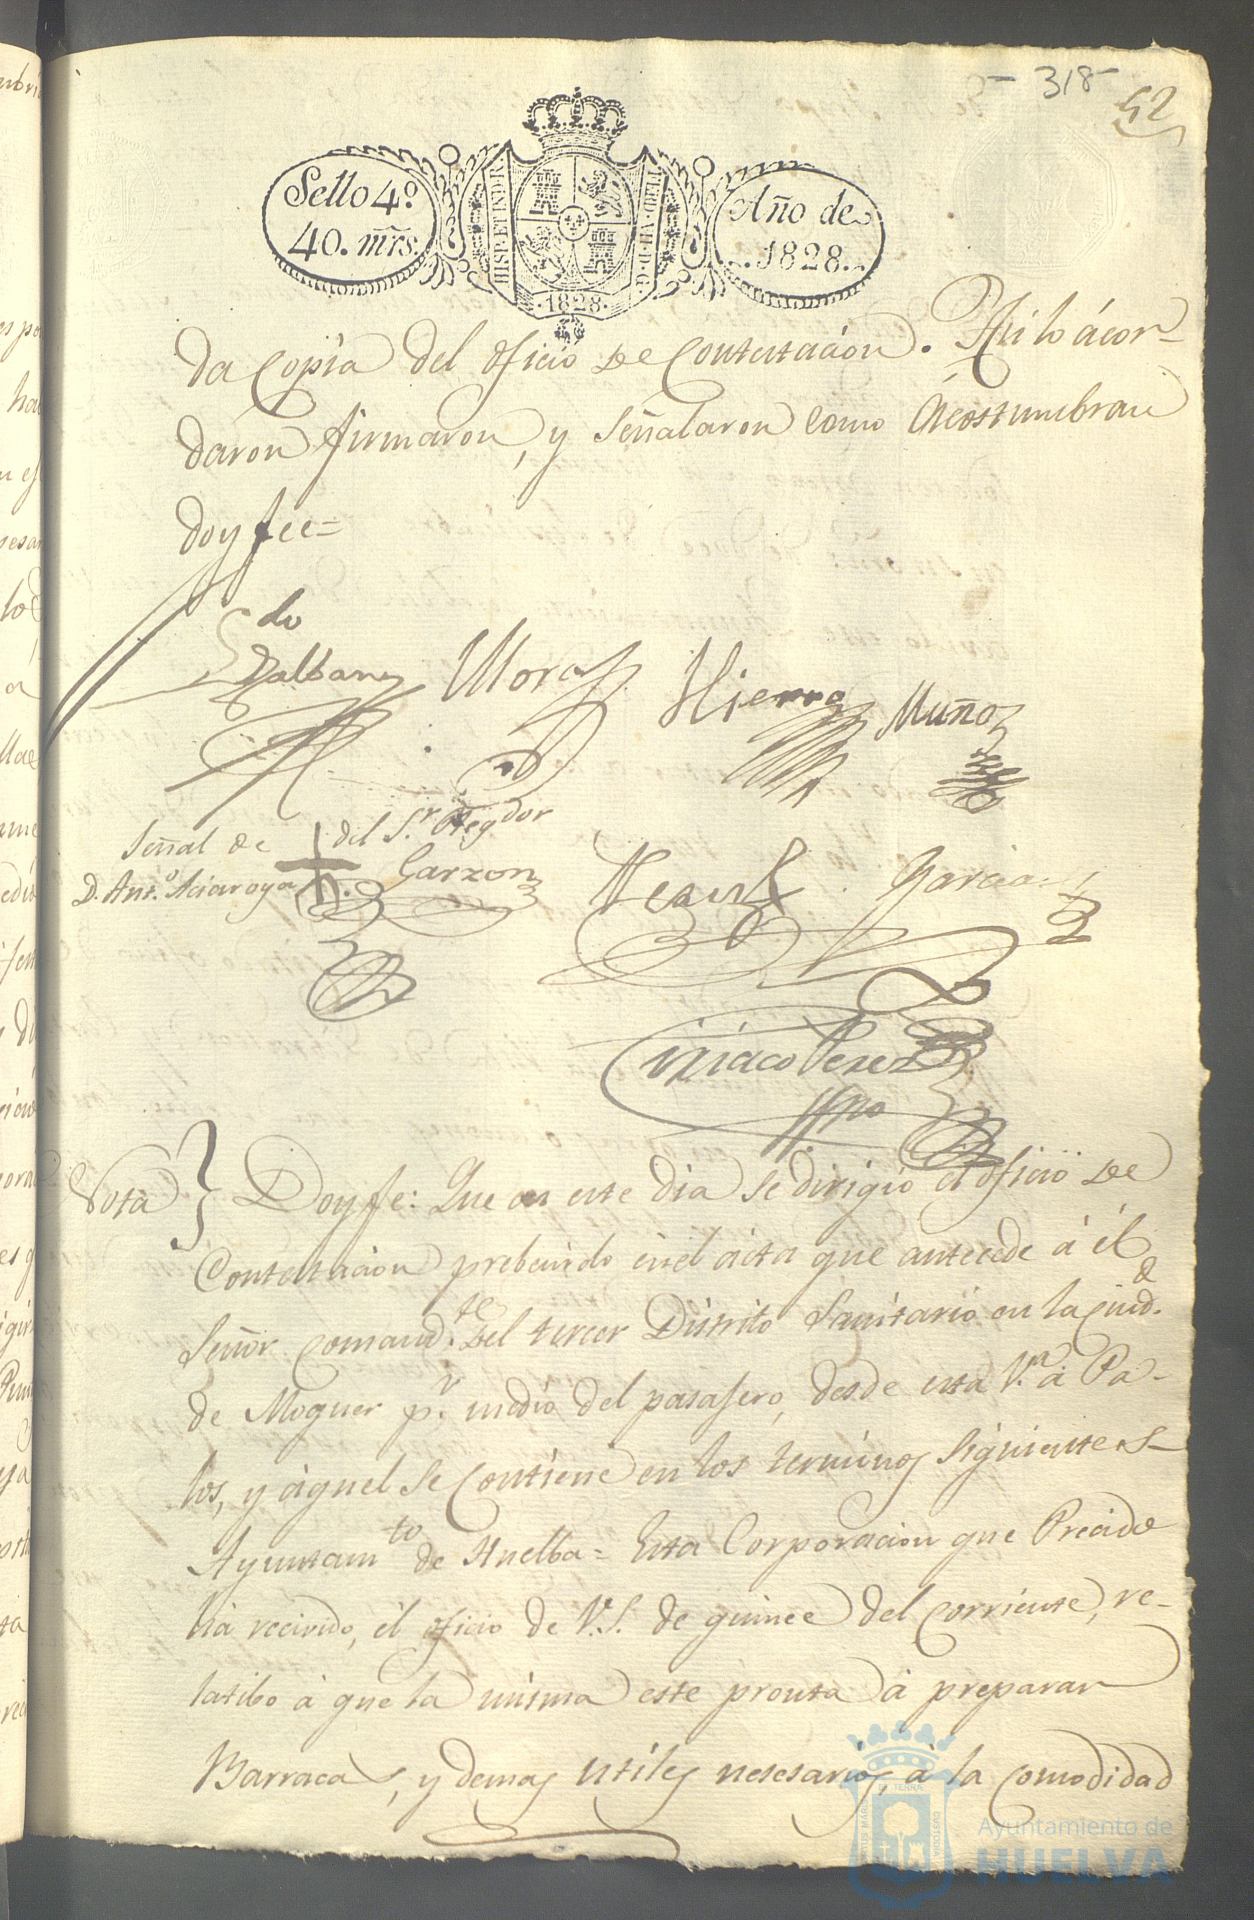 - 318 -
52
Sello 4º.
40. mrs.
HISP. ET IND. R.
FERD. VII. D. G.
.1828.
Año de
..1828..
da copia del oficio de Contextacion. Asi lo ácor-
daron firmaron, y señalaron como ácostumbran
doy fee=
Ldo
Balbany Mora Hierro Muñoz
Señal de + del S.r Regdor
D. Ant.º Garzon
Garcia
Ciriaco Perez
ssno
Nota } Doy fe: Que en este dia se dirigió el oficio de
Contextacion prebenido en el ácta que antecede á él
Señor Comand.te del tercer Distrito Sanitario en la Ciud.d
de Moguer p.r medio del pasajero, desde esta V.a á Pa-
los, y áquel se Contiene en los terminos siguientes-
Ayuntam.to de Huelba= Esta Corporacion que Precido
há recivido, él oficio de V.S. de quince del corriente, re-
latibo á que la misma este pronta á preparar
Barracas, y demas utiles nesesarios, á la comodidad
Ayuntamiento de
HUELVA